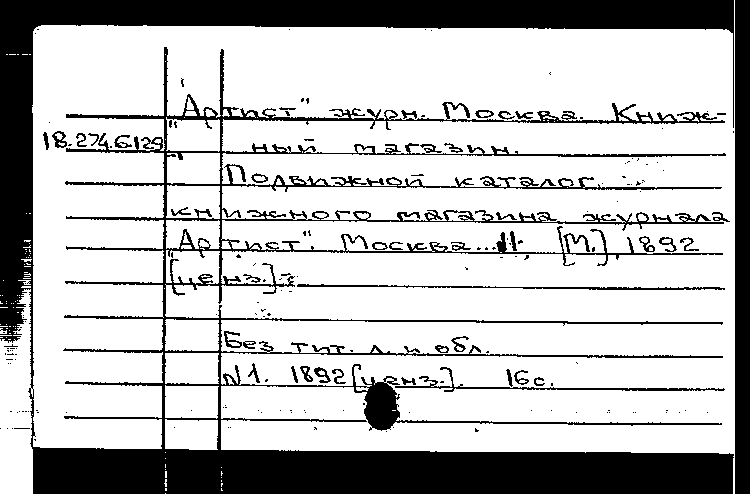 "Артист", журн. Москва. Книж-
18.274.6.129
ный магазин.
Подвижной каталог
книжного магазина журнала
"Артист". Москва... [М.], 1892
[ценз.]-
Без тит. л. и обл.
№1. 1892 [ценз.]. 16 с.